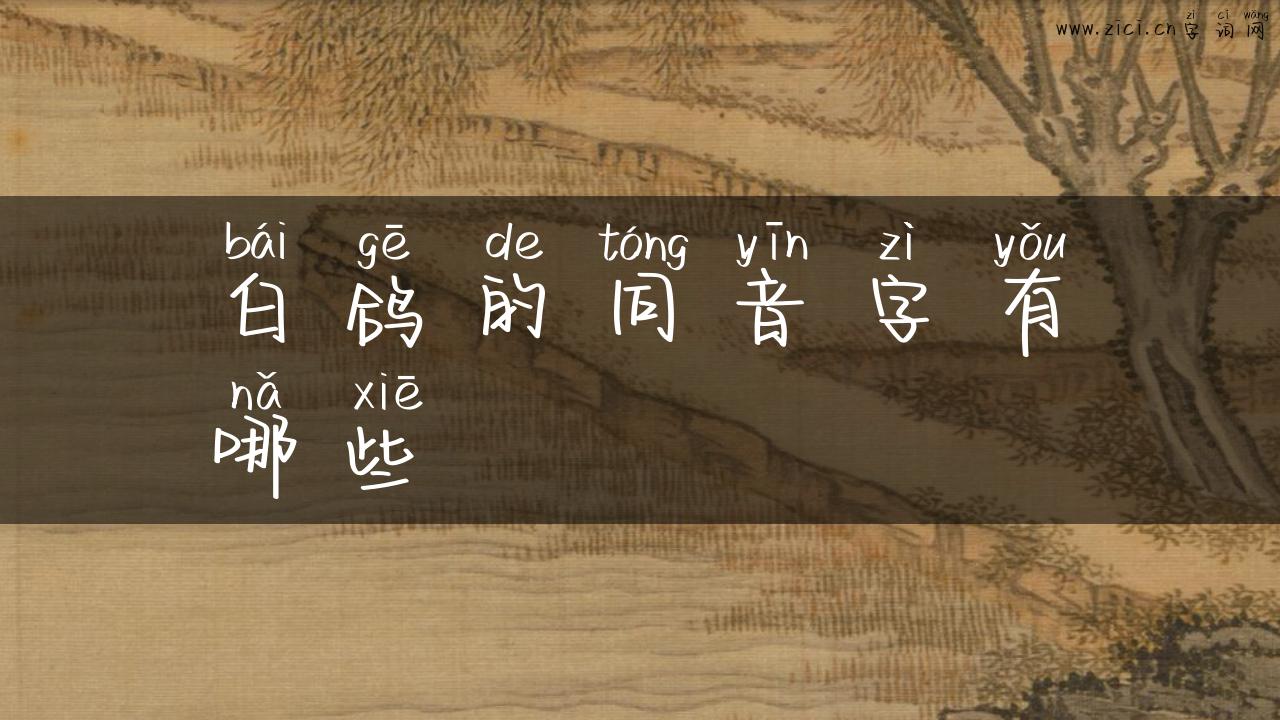 zì cí wǎng
www.zici.cn字词网
bái gē de tóng yīn zì yǒu
白鸽的同音字有
nǎ xiē
哪些